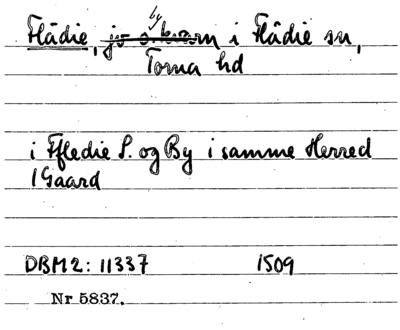 by
Flädie, jo o. k:a rn i Flädie sn,
Torna hd
i Ffledie S. og By i samme Herred
1 Gaard
DBM2: 11337 1509
Nr 5837.